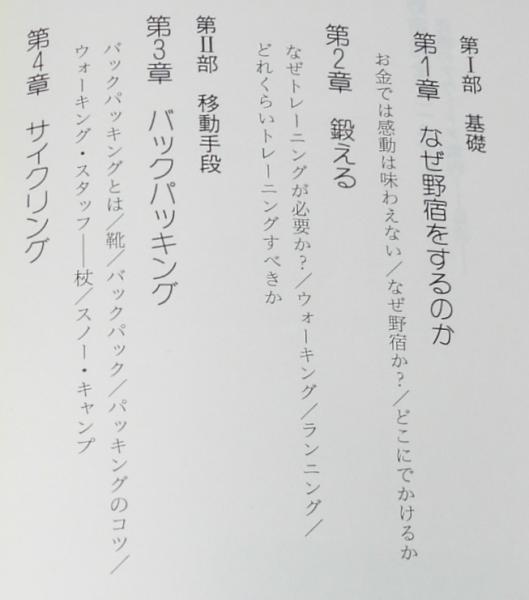 第Ⅰ部　基礎
第1章　なぜ野宿をするのか
お金では感動は味わえない／なぜ野宿か？／どこにでかけるか
第2章　鍛える
なぜトレーニングが必要か？／ウォーキング／ランニング／
どれくらいトレーニングすべきか
第Ⅱ部　移動手段
第3章　バックパッキング
バックパッキングとは／靴／バックパック／パッキングのコツ／
ウォーキング・スタッフ――杖／スノー・キャンプ
第4章　サイクリング